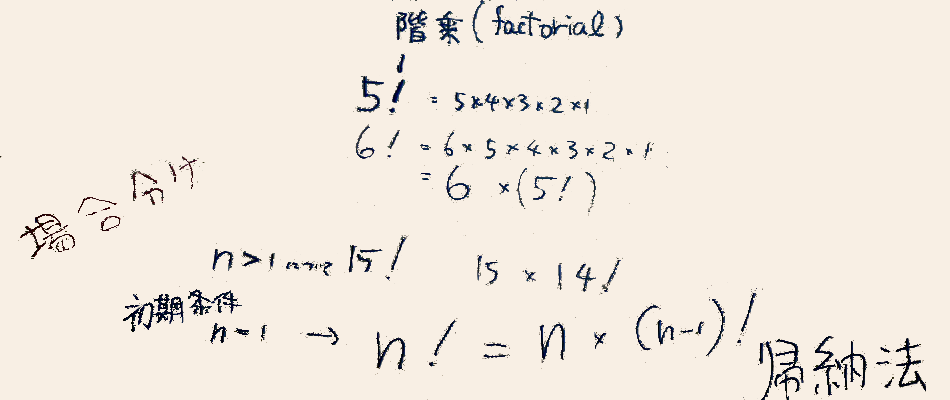 階乗(factorial)
5! = 5×4×3×2×1
6! = 6×5×4×3×2×1
= 6 ×(5!)
場合分け
n>1 15! 15 × 14!
初期条件
n=1 → n! = n × (n-1)!
帰納法